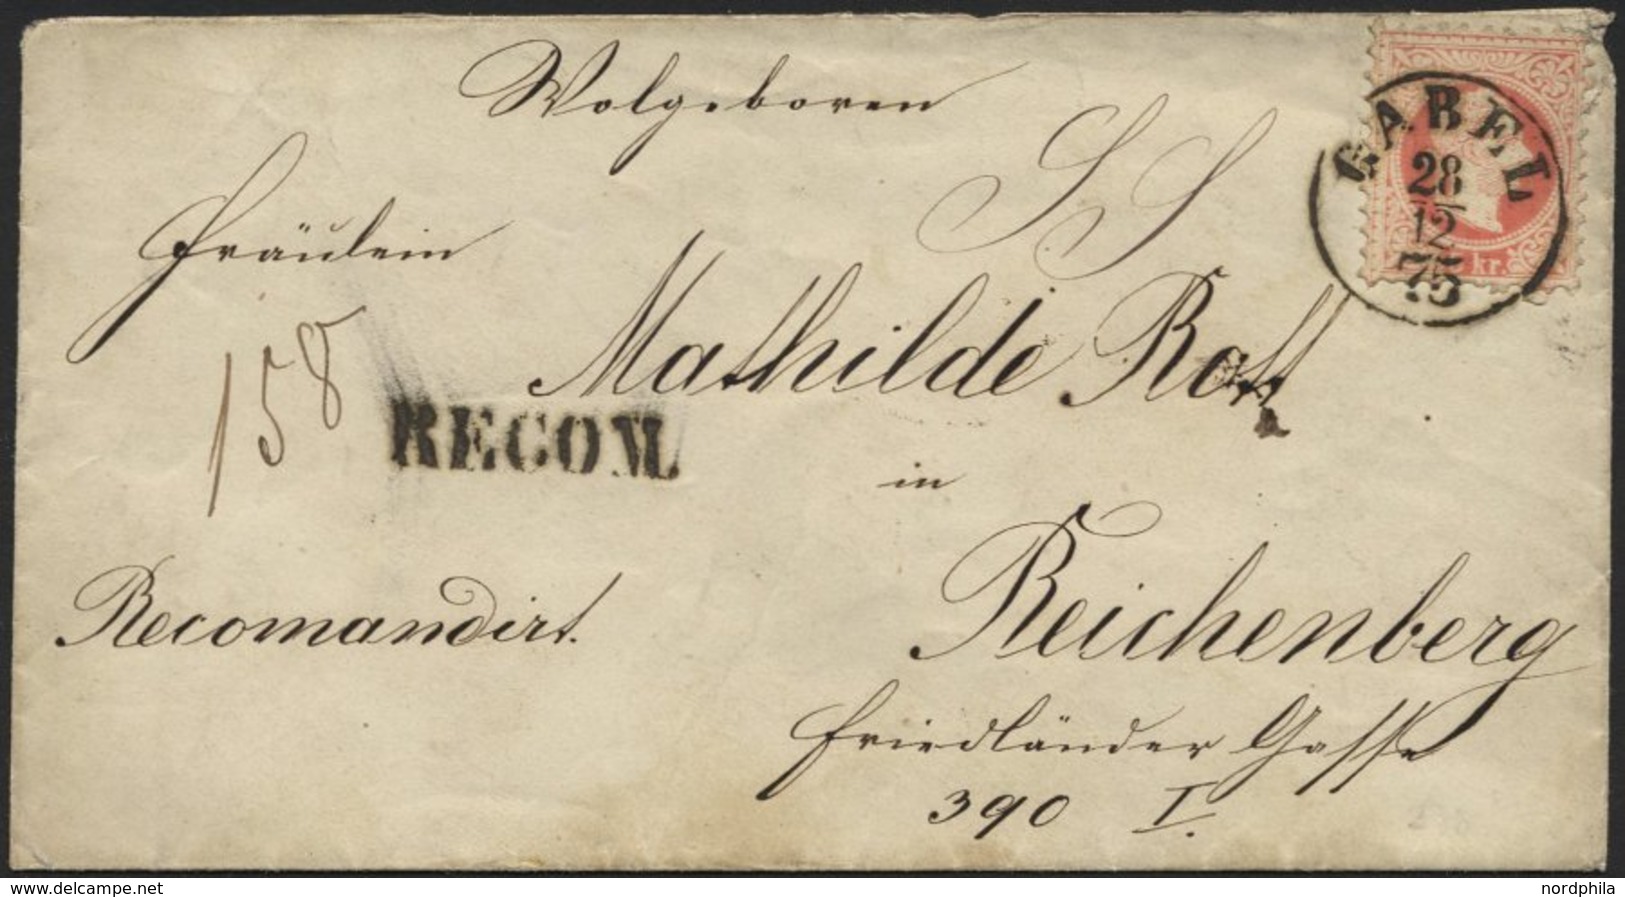 Wolgeboren
SS
GABEL
28
12
75
kr.
Fräulein
Mathilde Rott
158
RECOM.
in
Recomandirt.
Reichenberg
Friedländer Gasse
390 I.
www.delcampe.net
nordphila